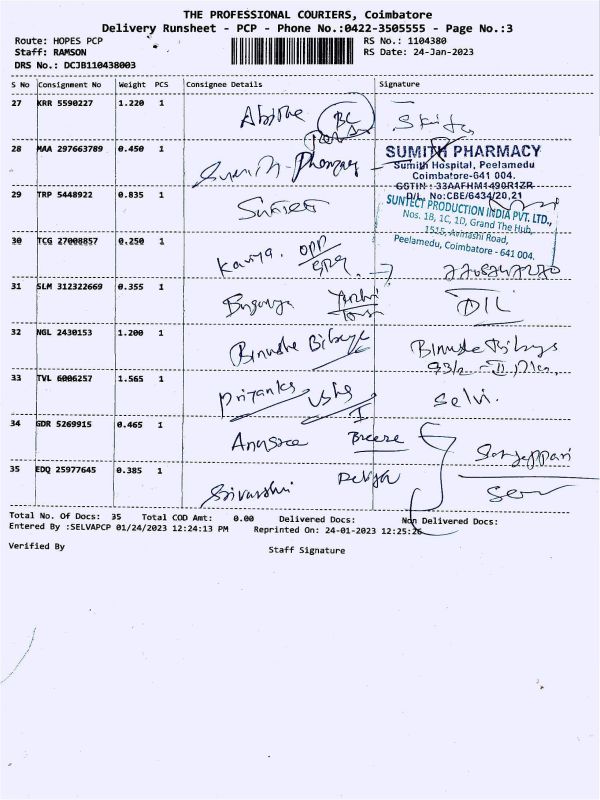 THE PROFESSIONAL COURIERS, Coimbatore
Delivery Runsheet - PCP - Phone No.:0422-3505555 - Page No.:3
Route: HOPES PCP RS No.: 1104380
Staff: RAMSON RS Date: 24-Jan-2023
DRS No.: DCJB110438003
S No Consignment No Weight PCS Consignee Details Signature
27 KRR 5590227 1.220 1 BC
28 MAA 297663789 0.450 1
SUMITH PHARMACY
Sumith Hospital, Peelamedu
Coimbatore-641 004.
GSTIN : 33AAFHM1490R1ZR
D/L No:CBE/6434/20,21
29 TRP 5448922 0.835 1 Suntect
SUNTECT PRODUCTION INDIA PVT. LTD.,
Nos. 1B, 1C, 1D, Grand The Hub,
1515, Avinashi Road,
Peelamedu, Coimbatore - 641 004.
30 TCG 27008857 0.250 1 Kavya. opp
31 SLM 312322669 0.355 1
32 NGL 2430153 1.200 1
33 TVL 6006257 1.565 1 Priyanka Usha Selvi.
I
34 GDR 5269915 0.465 1 Breeze
35 EDQ 25977645 0.385 1
Total No. Of Docs: 35 Total COD Amt: 0.00 Delivered Docs: Non Delivered Docs:
Entered By :SELVAPCP 01/24/2023 12:24:13 PM Reprinted On: 24-01-2023 12:25:26
Verified By Staff Signature